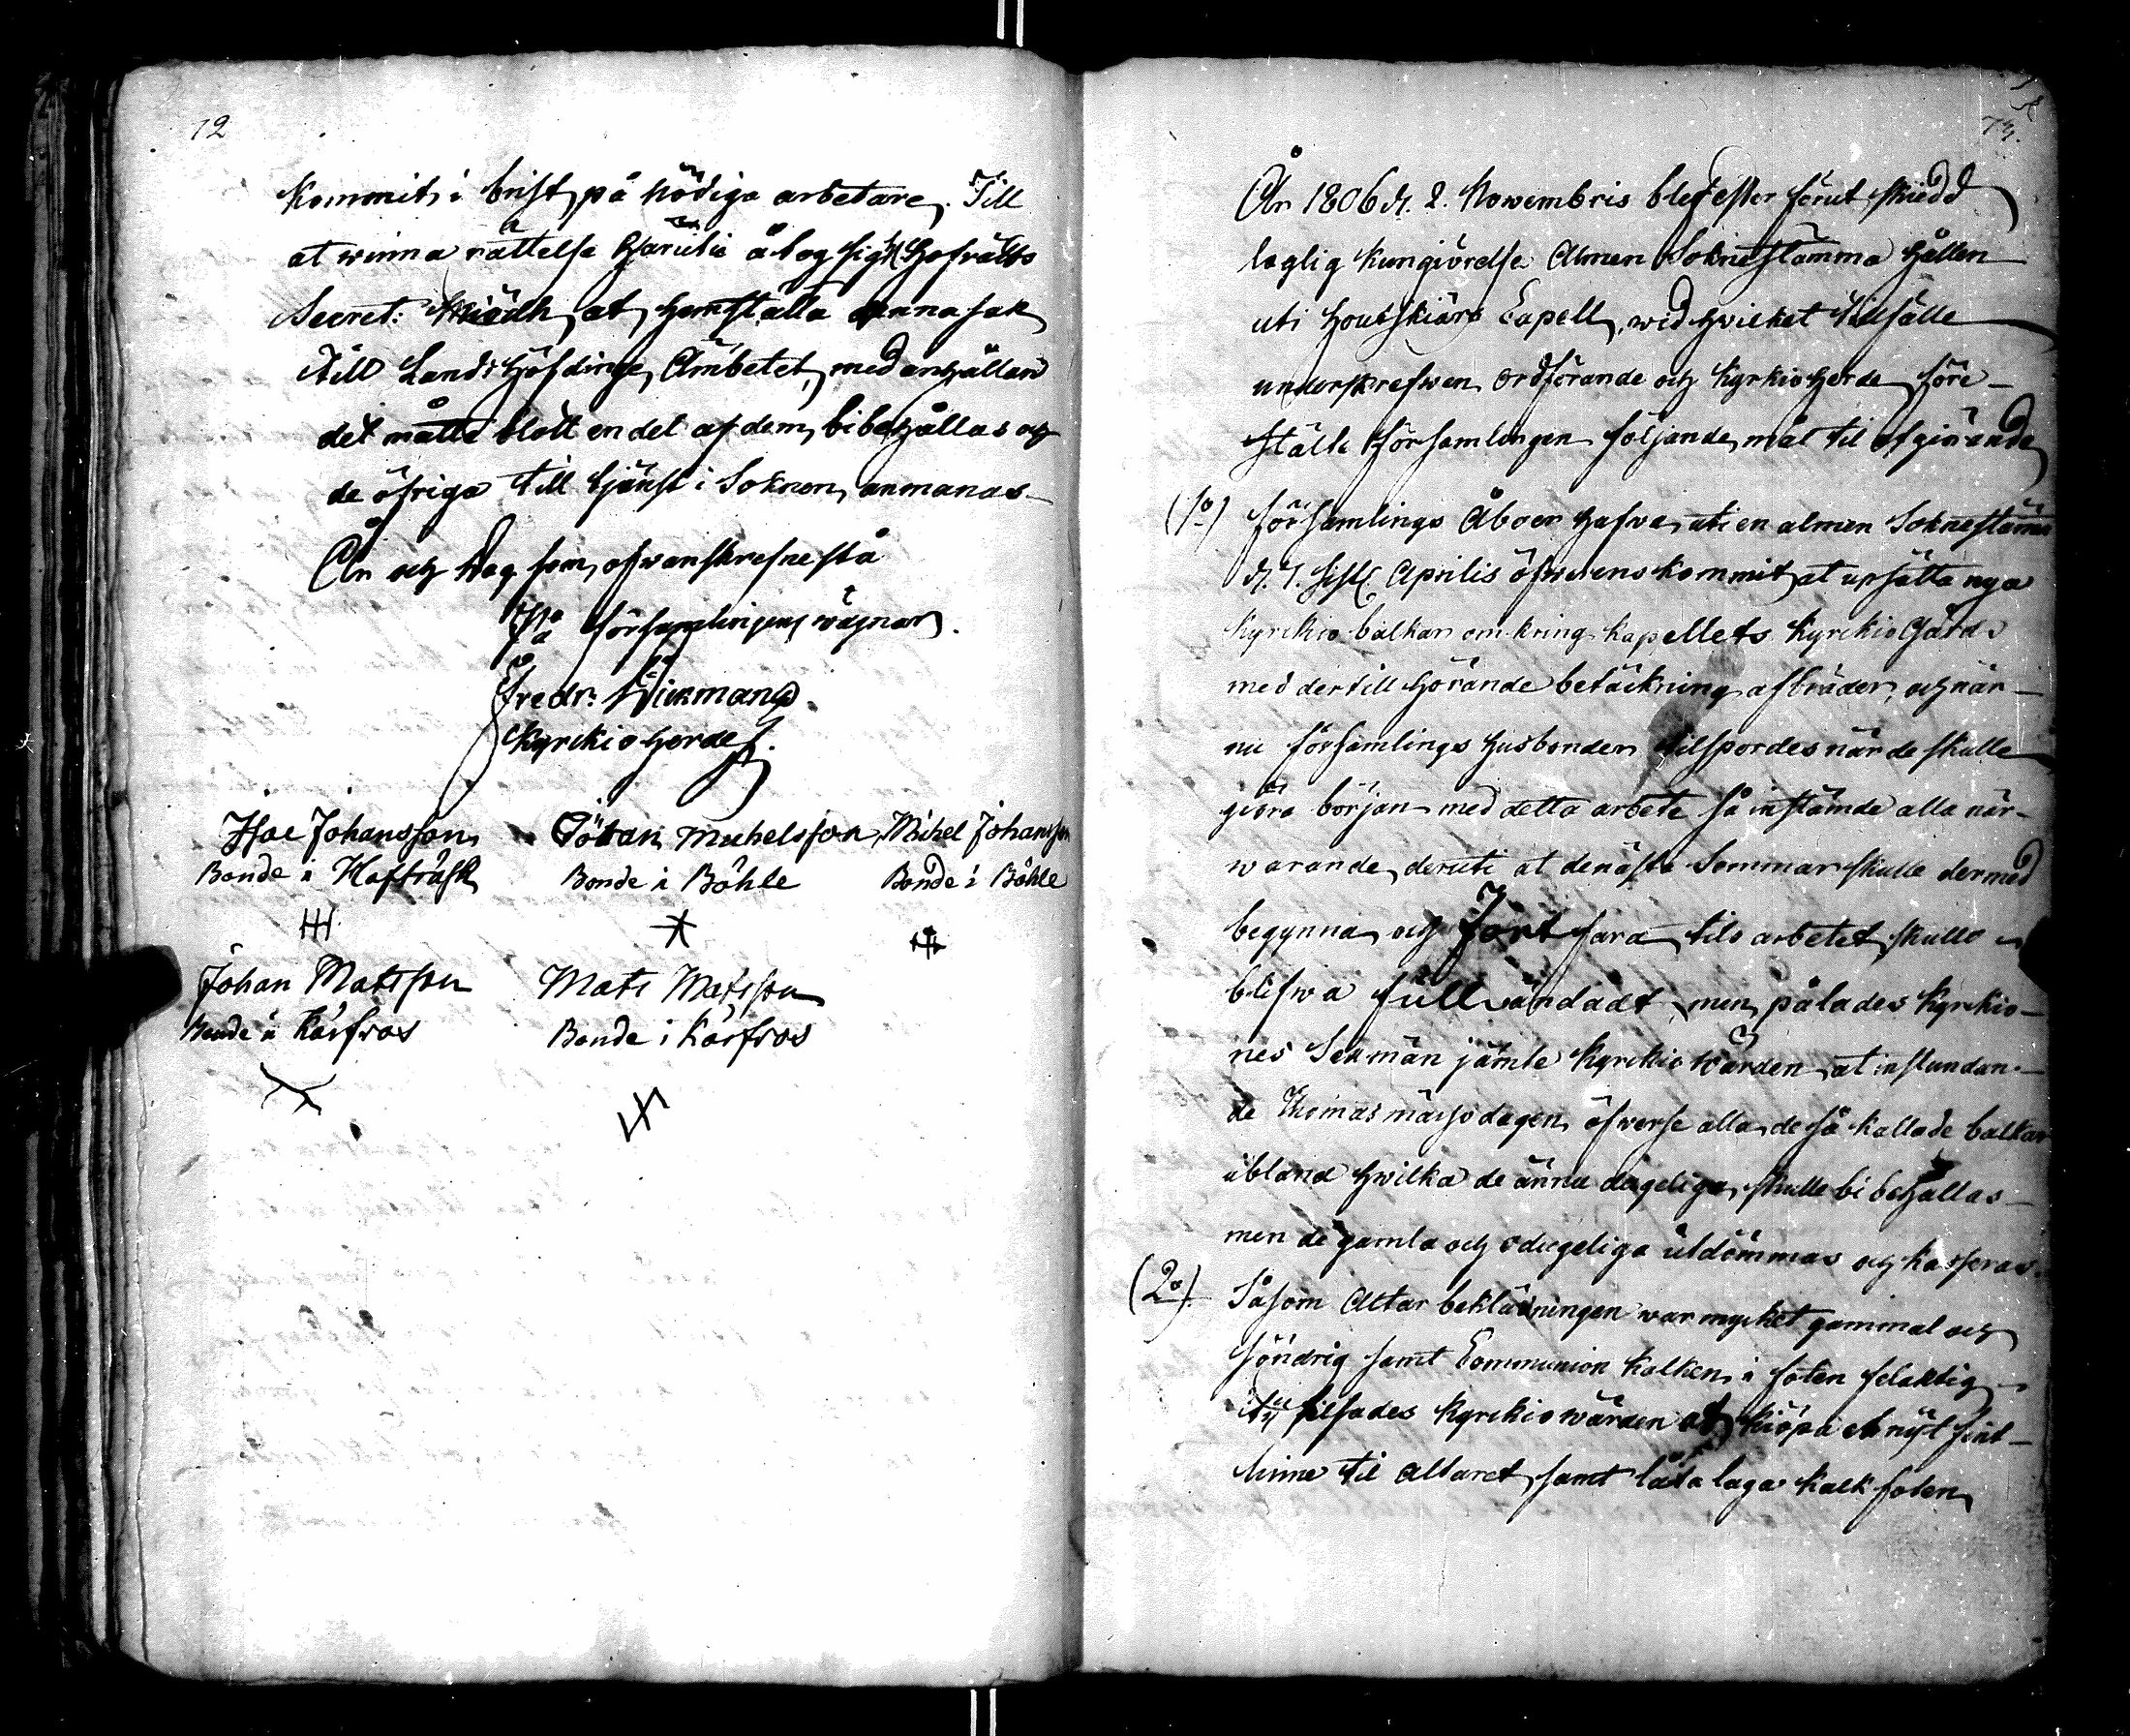 72
kommit i brist på nödiga arbetare. Till
at winna rättelse häruti åtog sig H Hofrätts
Secret: at hemställa denna sak
till Landshöfdinge Ämbetet, med anhållan
det måtte blott en del af dem bibehållas och
de öfriga till tjänst i Soknen anmanas
År och dag som ofwanskrefne stå
På församlingens wägnar.
Fredr: Wikman
Kyrckioherde
Isac Johansson Göran Michelsson Michel Johansson
Bonde i Bonde i Böhle Bonde i Böhle
Johan Matsson Mats Matsson
Bonde i Kårfros Bonde i Kårfros
73.
År 1806 d. 2. Novembris blef efter förut skiedd
laglig kungiörelse Almen Soknestämma hållen
uti Houtskiärs Capell, wid hwilket tillfälle
underskrefwen ordförande och Kyrkioherde före-
stälte församlingen följande mål til afgiörande
(1º) församlings Åboer hafva uti en almen Soknestämma
d. 7. sistl. Aprilis öfwerenskommit at upsätta nya
Kyrckio balkar omkring kapellets Kyrckio Gård
med dertill hörande betäckning af bräder, och när
nu församlings husbonder tilspordes när de skulle
giöra början med detta arbete så instämde alla när-
warande deruti at de nästa Sommar skulle dermed
begynna och fortfara tils arbetet skulle
blifwa fulländadt, men pålades Kyrckio-
nes Sexmän jämte Kyrckiowärden at instundan-
de Thomasmässodagen öfwerse alla de så kallade balkar
ibland hwilka de ännu dugeliga skulle bibehållas
men de gamla och odugeliga utdömmas och kasseras.
(2º) Såsom Altarbeklädningen war mycket gammal och
söndrig samt Communion kalken i foten felaktig
ty tilsades Kyrckiowärden at kiöpa et nytt fint
linne til Altaret samt låta laga kalkfoten